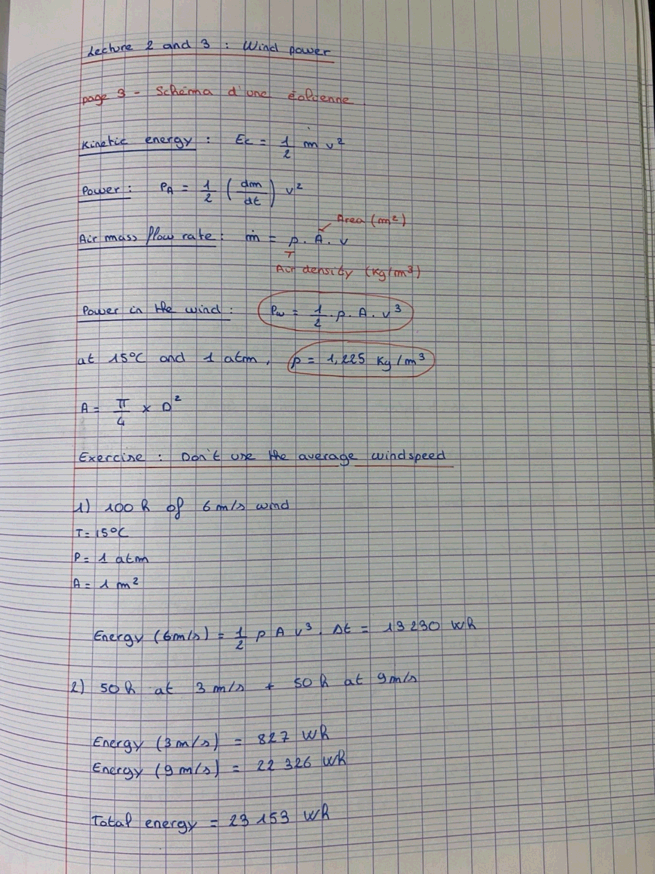 Lecture 2 and 3 : Wind power
page 3 - Schéma d'une éolienne
Kinetic energy : Ec = 1/2 m v²
Power : PA = 1/2 (dm/dt) v²
Area (m²)
Air mass flow rate : ṁ = ρ . A . v
Air density (Kg/m³)
Power in the wind : Pw = 1/2 . ρ . A . v³
at 15°C and 1 atm, ρ = 1,225 Kg/m³
A = π/4 x D²
Exercise : Don't use the average windspeed
1) 100 h of 6 m/s wind
T = 15°C
P = 1 atm
A = 1 m²
Energy (6m/s) = 1/2 ρ A v³ . Δt = 13 230 Wh
2) 50 h at 3 m/s + 50 h at 9 m/s
Energy (3 m/s) = 827 Wh
Energy (9 m/s) = 22 326 Wh
Total energy = 23 153 Wh